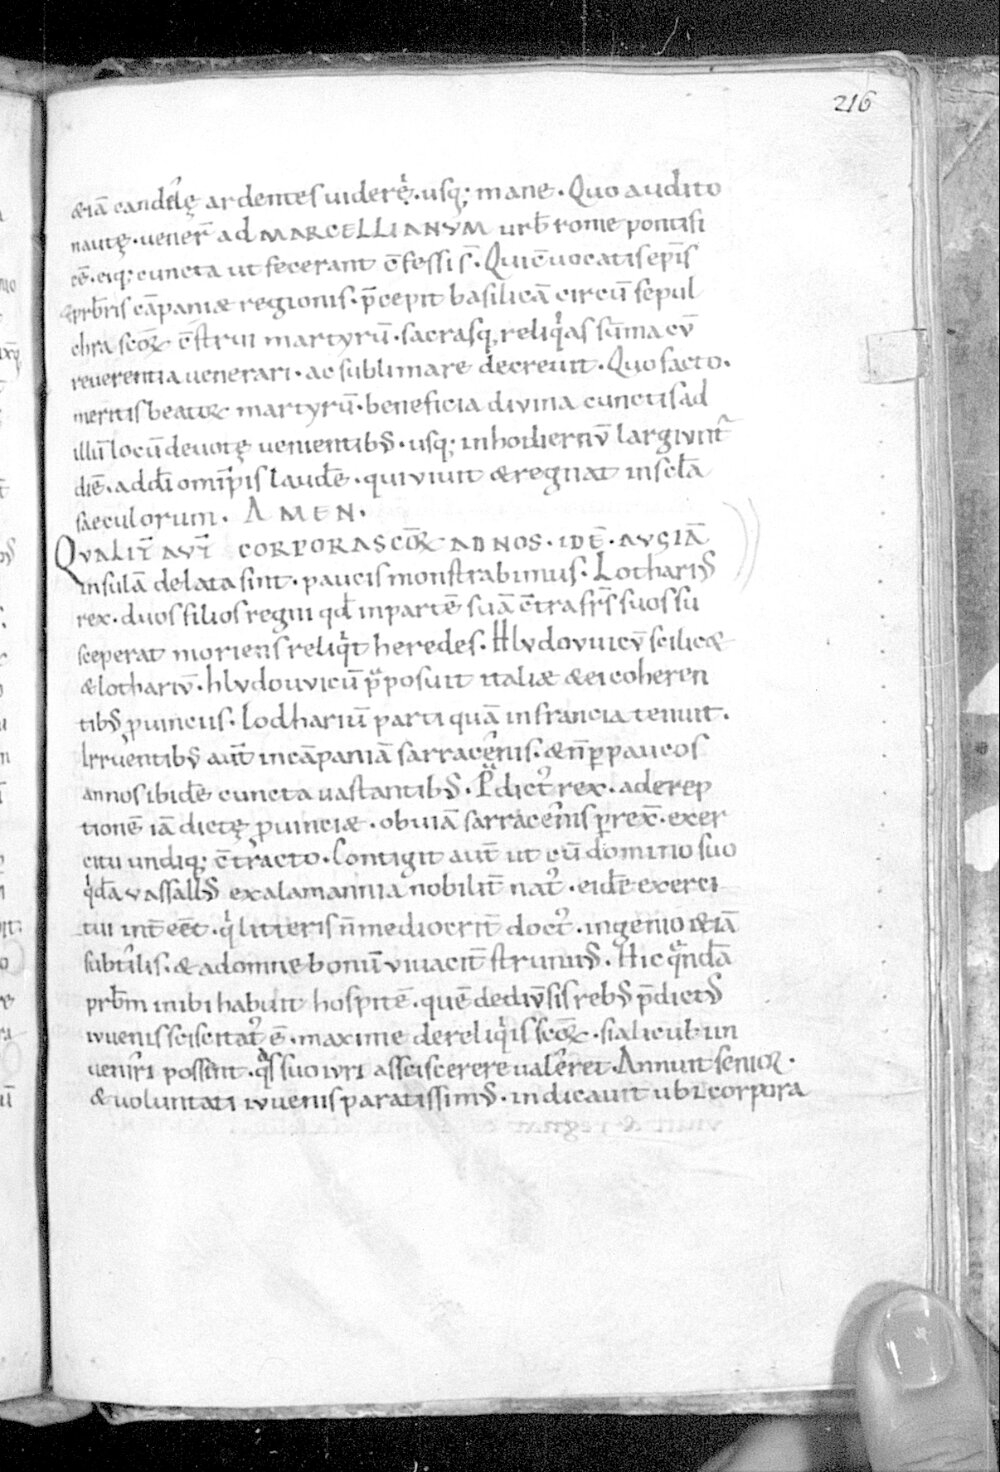 216
&iā candelę ardentes uiderẽ. usq; mane. Quo audito
nautę. uener̄ ad MARCELLIANVM urb̄ rome pontifi
cē. eiq; cuncta ut fecerant c̄fessi s̄. Qui c̄uocatis ep̄is
&prb̄ris cāpaniæ regionis. p̄cepit basilicā circū sepul
chra scōꝝ c̄strui martyrū. sacrasq, reliqͥas sūma cū
reuerentia uenerari. ac sublimare decreuit. Quo facto.
meritis beatoꝝ martyrū. beneficia divina cunctis ad
illū locū deuotę uenientibꝰ. usq; in hodiernū largiunt᷑
diē. ad dī omīpis laudē. qui viuit & regnat in scl̄a
saeculorum. AMEN.
QVALIT̄ AVT̄ CORPORA SCŌꝝ AD NOS. IDĒ. AVGIĀ
insulā delata sint. paucis monstrabimus. Lothariꝰ
rex. duos filios regni qd̄ in partē suā c̄tra fr̄s suos su
sceperat moriens reliqͥt heredes. Hludovuicū scilic&
& lothariū. hludouvicū p̄posuit italiæ & ei coheren
tibꝰ ꝓuinciis. Lodhariū parti quā in francia tenuit.
Irruentibꝰ aut̄ in cāpaniā sarracenis. & n̄ ꝑ paucos
annos ibidē cuncta uastantibꝰ. P̄dict᷑ rex. ad erep
tionē iā dictę ꝓuinciæ. obuiā sarracenis ꝑrex̄. exer
citu undiq; c̄tracto. Contigit aut̄ ut cū domino suo
qͥdā vassallꝰ ex alamannia nobilit̄ nat᷑. eidē exerci
tui int̄eēt. qͥ litteris n̄ mediocrit̄ doct᷑. ingenio &iā
subtilis. & ad omne bonū vivacit̄ strunuꝰ. Hic qͣndā
prb̄m inibi habuit hospitē. quē de diūsis rebꝰ p̄dictꝰ
iuuenis sciscitat᷑ ē. maxime de reliqͥis scōꝝ. si alicub̄ in
ueniri possent. qͣs suo iuri assciscerere ualeret. Annuit senioꝝ.
& uoluntati iuuenis paratissimꝰ. indicauit ubi corpora